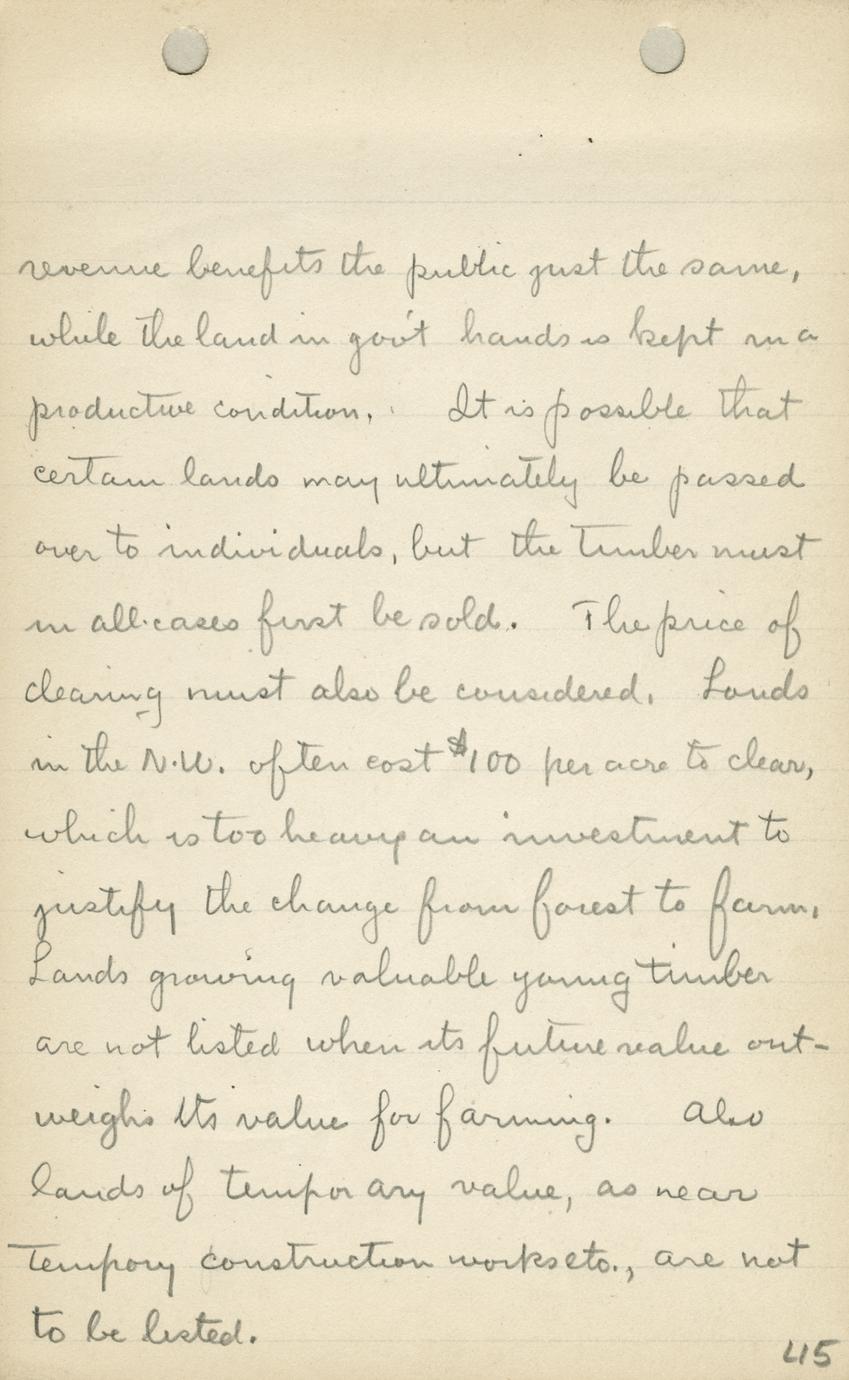 revenue benefits the public just the same,
while the land in gov't hands is kept in a
productive condition. It is possible that
certain lands may ultimately be passed
over to individuals, but the timber must
in all cases first be sold. The price of
clearing must also be considered. Lands
in the N.W. often cost $100 per acre to clear,
which is too heavy an investment to
justify the change from forest to farm.
Lands growing valuable young timber
are not listed when its future value out-
weighs its value for farming. Also
lands of temporary value, as near
tempory construction works etc., are not
to be listed.
415